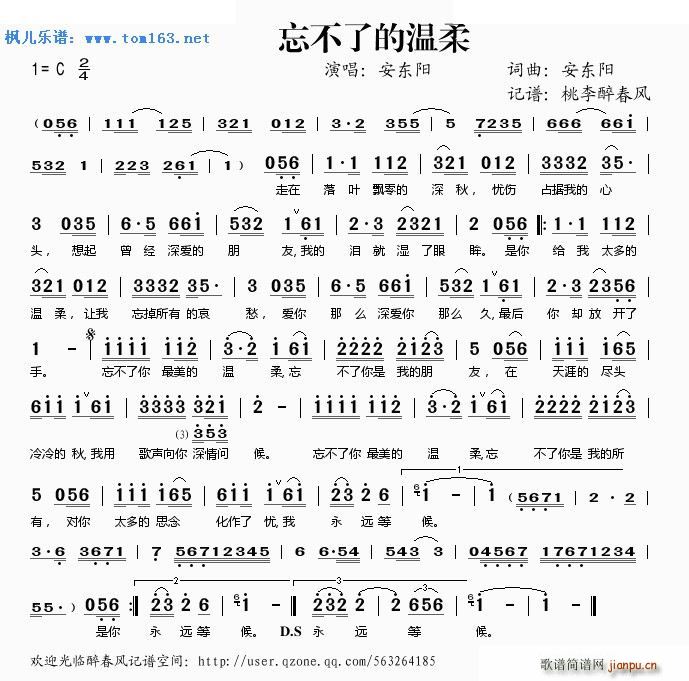 枫儿乐谱：www.tom163.net
忘不了的温柔
1=C 2/4 演唱：安东阳 词曲：安东阳
记谱：桃李醉春风
(056 | 111 125 | 321 012 | 3·2 355 | 5 7235 | 666 661 |
532 1 | 223 261 | 1) 056 | 1·1 112 | 321 012 | 3332 35· |
走在 落叶飘零的 深秋，忧伤 占据我的心
3 035 | 6·5 661 | 532 1∨61 | 2·3 2321 | 2 056 |: 1·1 112 |
头，想起 曾经深爱的 朋友，我的 泪就湿了眼 眸。是你 给我太多的
321 012 | 3332 35· | 3 035 | 6·5 661 | 532 1∨61 | 2·3 2356 |
温柔，让我 忘掉所有的哀 愁，爱你 那么深爱你 那么久，最后 你却放开了
1 - | 1111 112 | 3·2 1∨61 | 2222 2123 | 5 056 | 111 165 |
手。 忘不了你最美的 温柔，忘 不了你是我的朋 友，在 天涯的尽头
611 1∨61 | 3333 321 | 2 - | 1111 112 | 3·2 1∨61 | 2222 2123 |
(3) 353
冷冷的秋，我用 歌声向你深情问 候。 忘不了你最美的 温柔，忘 不了你是我的所
1
5 056 | 111 165 | 611 1∨61 | 23 26 | 61 - | 1 (5671 | 2·2 2·2 |
有，对你 太多的思念 化作了忧，我 永远等 候。
3·6 3671 | 7 56712345 | 5 56 | 6 6·54 | 543 3 | 04567 17671234 |
2 3
55·) 056 :| 23 26 | 61 - :| 232 2 656 | 61 - ||
是你 永远等 候。 D.S 永远等 候。
欢迎光临醉春风记谱空间：http://user.qzone.qq.com/563264185
歌谱简谱网
jianpu.cn